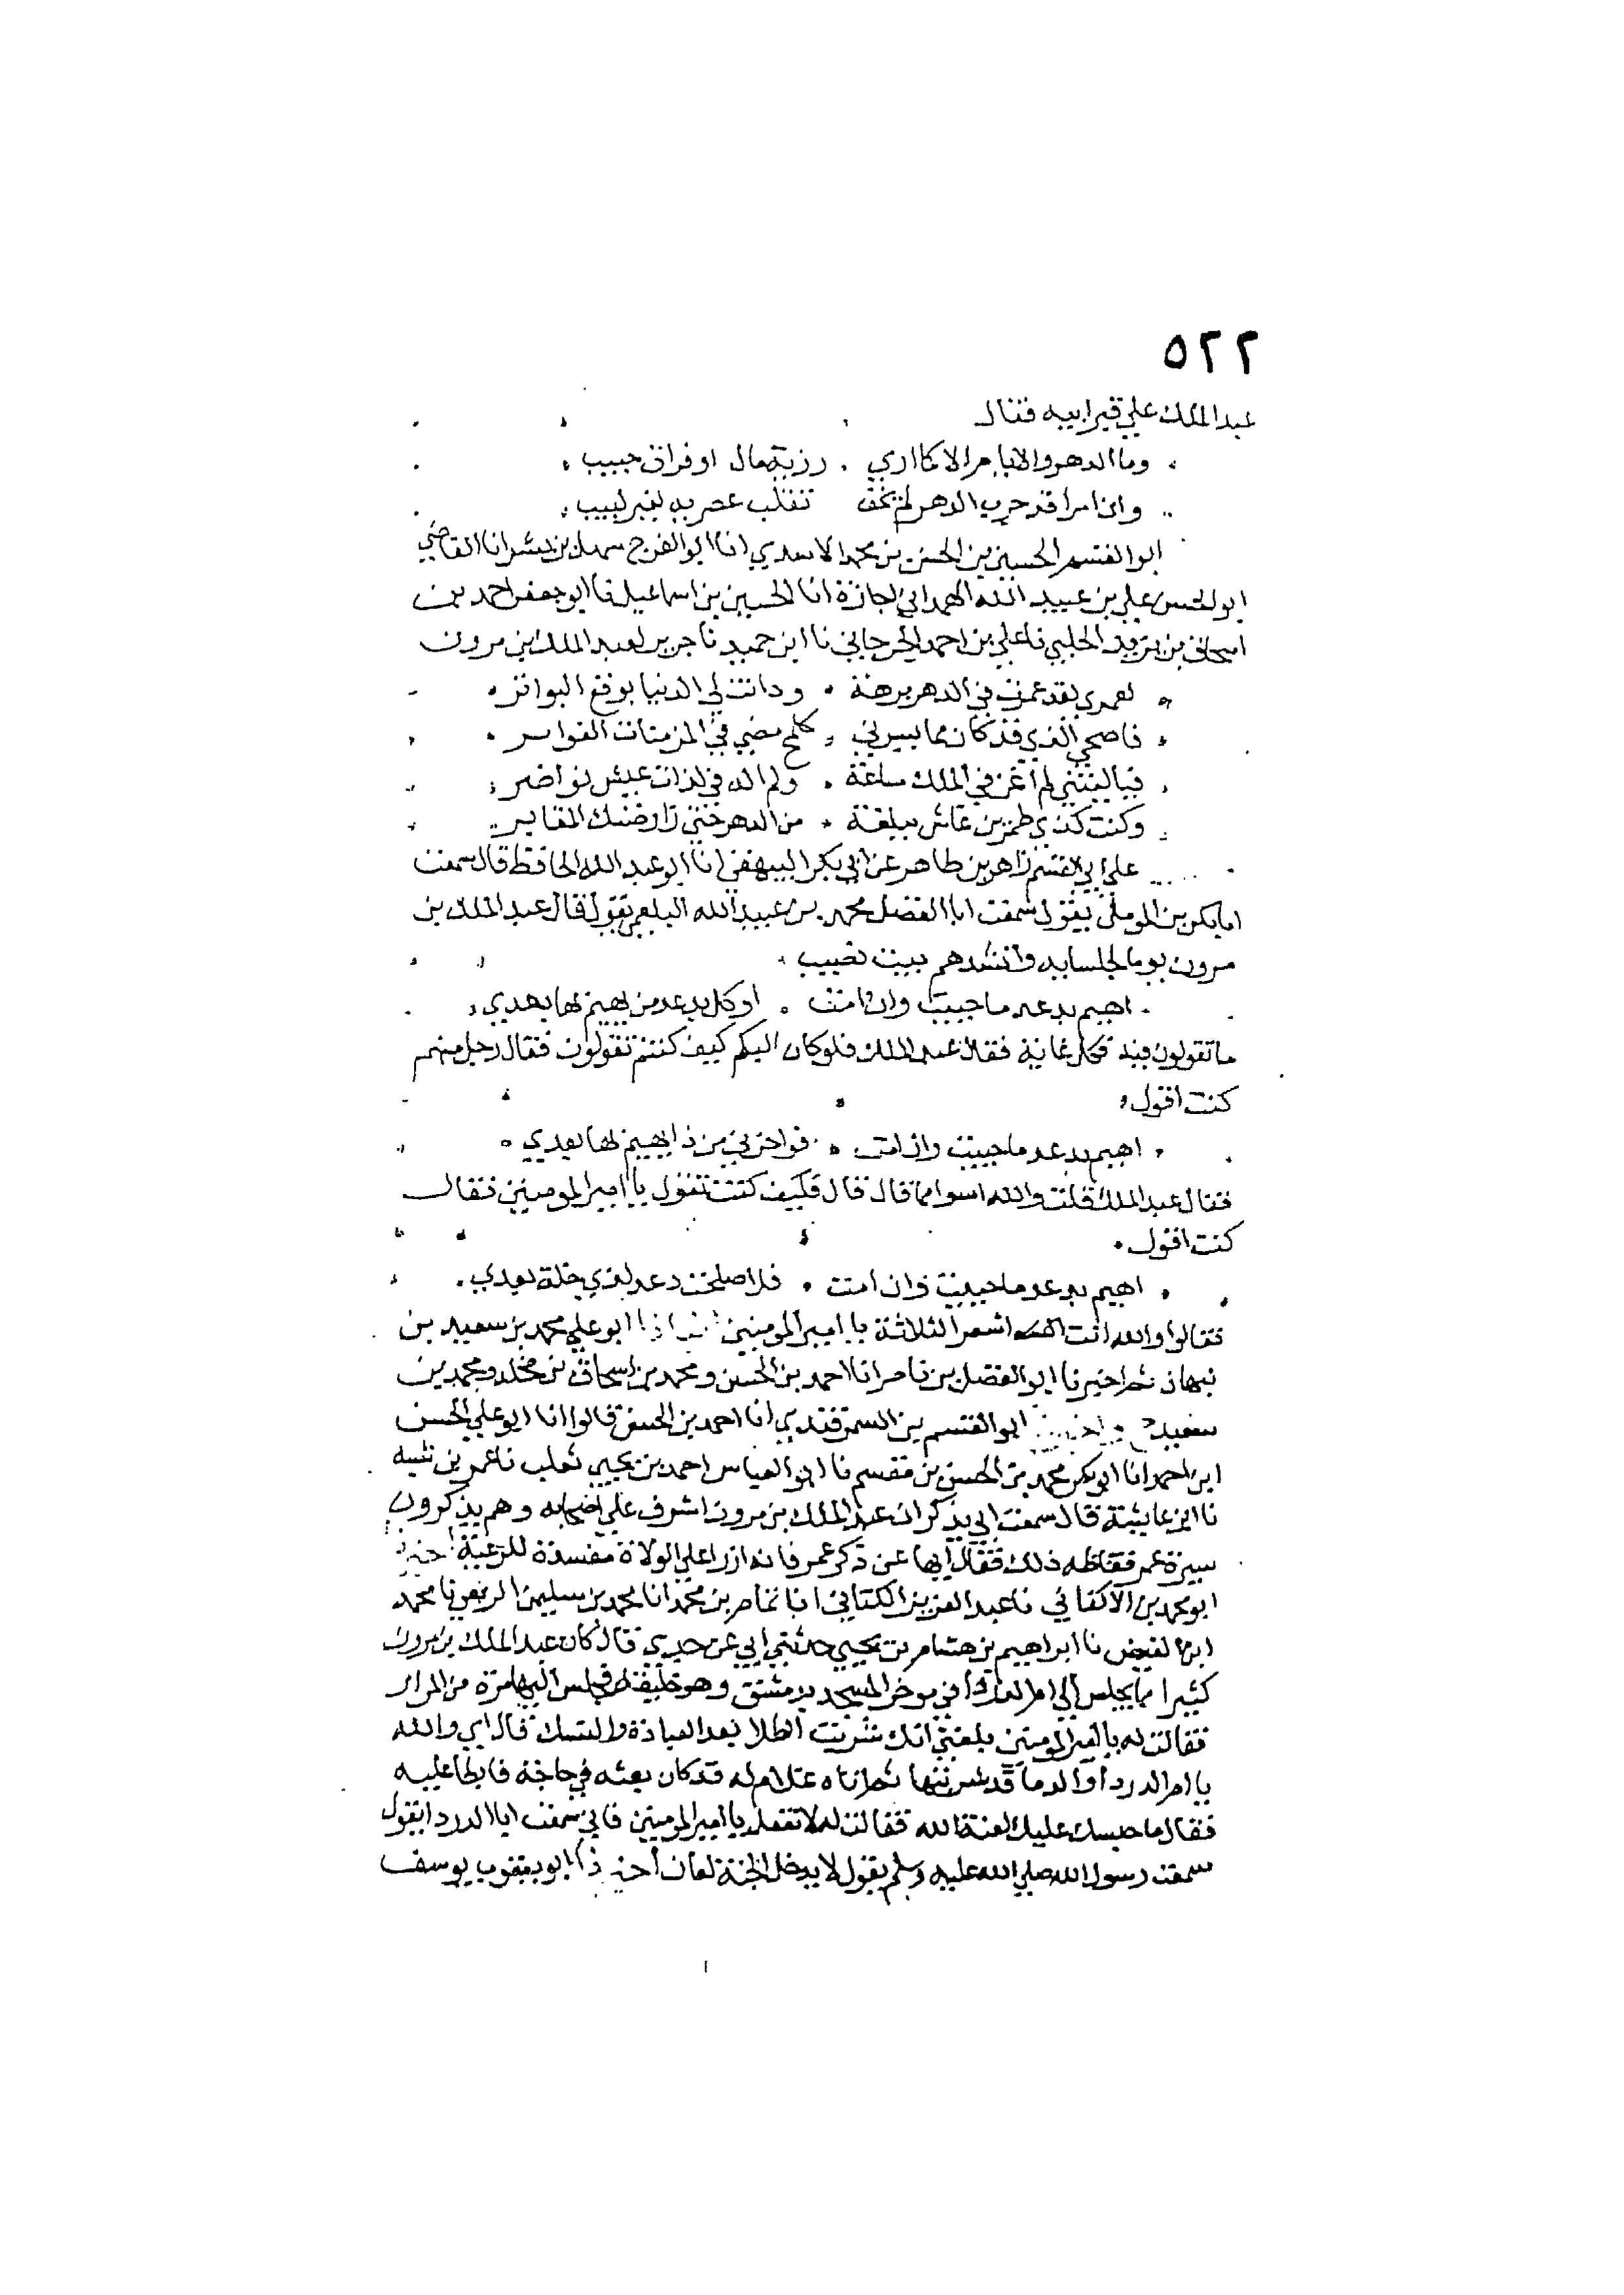 ٥٢٢
عبد الملك علي قبر ابيه فقال
وما الدهر والايام الا كما اري . رزية مال او فراق حبيب
وان امرا قد جرب الدهر لم يخف تقلب عصريه لغير لبيب
ابو القسم الحسين بن الحسن بن محمد الاسدي انا ابو الفرج سهل بن بشر انا القاضي
ابو الحسن علي بن عبيد الله الهمداني اجازة انا الحسين بن اسماعيل نا ابو جعفر احمد بن
اسحاق بن يزيد الحلبي نا علي بن احمد الجرجاني نا ابن حميد نا جرير لعبد الملك بن مرون
لعمري لقد عمرت في الدهر برهة . ودانت لي الدنيا بوقع البواتر
فاضحي الذي قد كان مما يسرني . كلمح مضي في المزمنات الغوابر
فيا ليتني لم اغن في الملك ساعة . ولم اله في لذات عيش نواضر
وكنت كذي طمرين عاش ببلغة . من الدهر حتي زار ضنك المقابر
علي ابي القسم زاهر بن طاهر عن ابي بكر البيهقي انا ابو عبد الله الحافظ قال سمعت
ابا بكر بن المومل يقول سمعت ابا الفضل محمد بن عبيد الله البلعمي يقول قال عبد الملك بن
مرون يوما لجلسايه وانشدهم بيت نصيب
اهيم بدعد ما حييت وان امت . اوكل بدعد من يهيم بها بعدي
ما تقولون فيه فكل عابه فقال عبد الملك فلو كان اليكم كيف كنتم تقولون فقال رجل منهم
كنت اقول
اهيم بدعد ما حييت وان امت . فواحزني من ذا يهيم بها بعدي
فقال عبد الملك قلت والله اسوا مما قال قال فكيف كنت تقول يا امير المومنين فقال
كنت اقول
اهيم بدعد ما حييت وان امت . فلا صلحت دعد لذي خلة بعدي
فقالوا والله انت اشعر الثلاثة يا امير المومنين ابو علي محمد بن سعيد بن
نبهان ثم اخبرنا ابو الفضل بن ناصر انا احمد بن الحسن ومحمد بن اسحاق بن مخلد ومحمد بن
سعيد ح ابو القسم بن السمرقندي انا احمد بن الحسن قالوا انا ابو علي الحسن
ابن احمد انا ابو بكر محمد بن الحسن بن مقسم نا ابو العباس احمد بن يحيي ثعلب نا عمر بن شبه
نا ابن عايشة قال سمعت ابي يذكر ان عبد الملك بن مرون اشرف علي اصحابه وهم يذكرون
سيرة عمر فغاظه ذلك فقال ايها عن ذكر عمر فانه ازرا علي الولاة مفسدة للرعية
ابو محمد بن الاكفاني نا عبد العزيز الكتاني انا تمام بن محمد انا محمد بن سليمن الربعي نا محمد
ابن الفيض نا ابراهيم بن هشام بن يحيي حدثني ابي عن جدي قال كان عبد الملك بن مرون
كثيرا ما يجلس الي ام الدردا في موخر المسجد بدمشق وهو خليفة فجلس اليها مرة من المرار
فقالت له يا امير المومنين بلغني انك شربت الطلا بعد العبادة والنسك قال اي والله
يا ام الدردا والدما قد شربتها ثم اتاه غلام له قد كان بعثه في حاجة فابطا عليه
فقال ما حبسك عليك لعنة الله فقالت له لا تفعل يا امير المومنين فاني سمعت ابا الدردا يقول
سمعت رسول الله صلي الله عليه وسلم يقول لا يدخل الجنة لعان ابو يعقوب يوسف